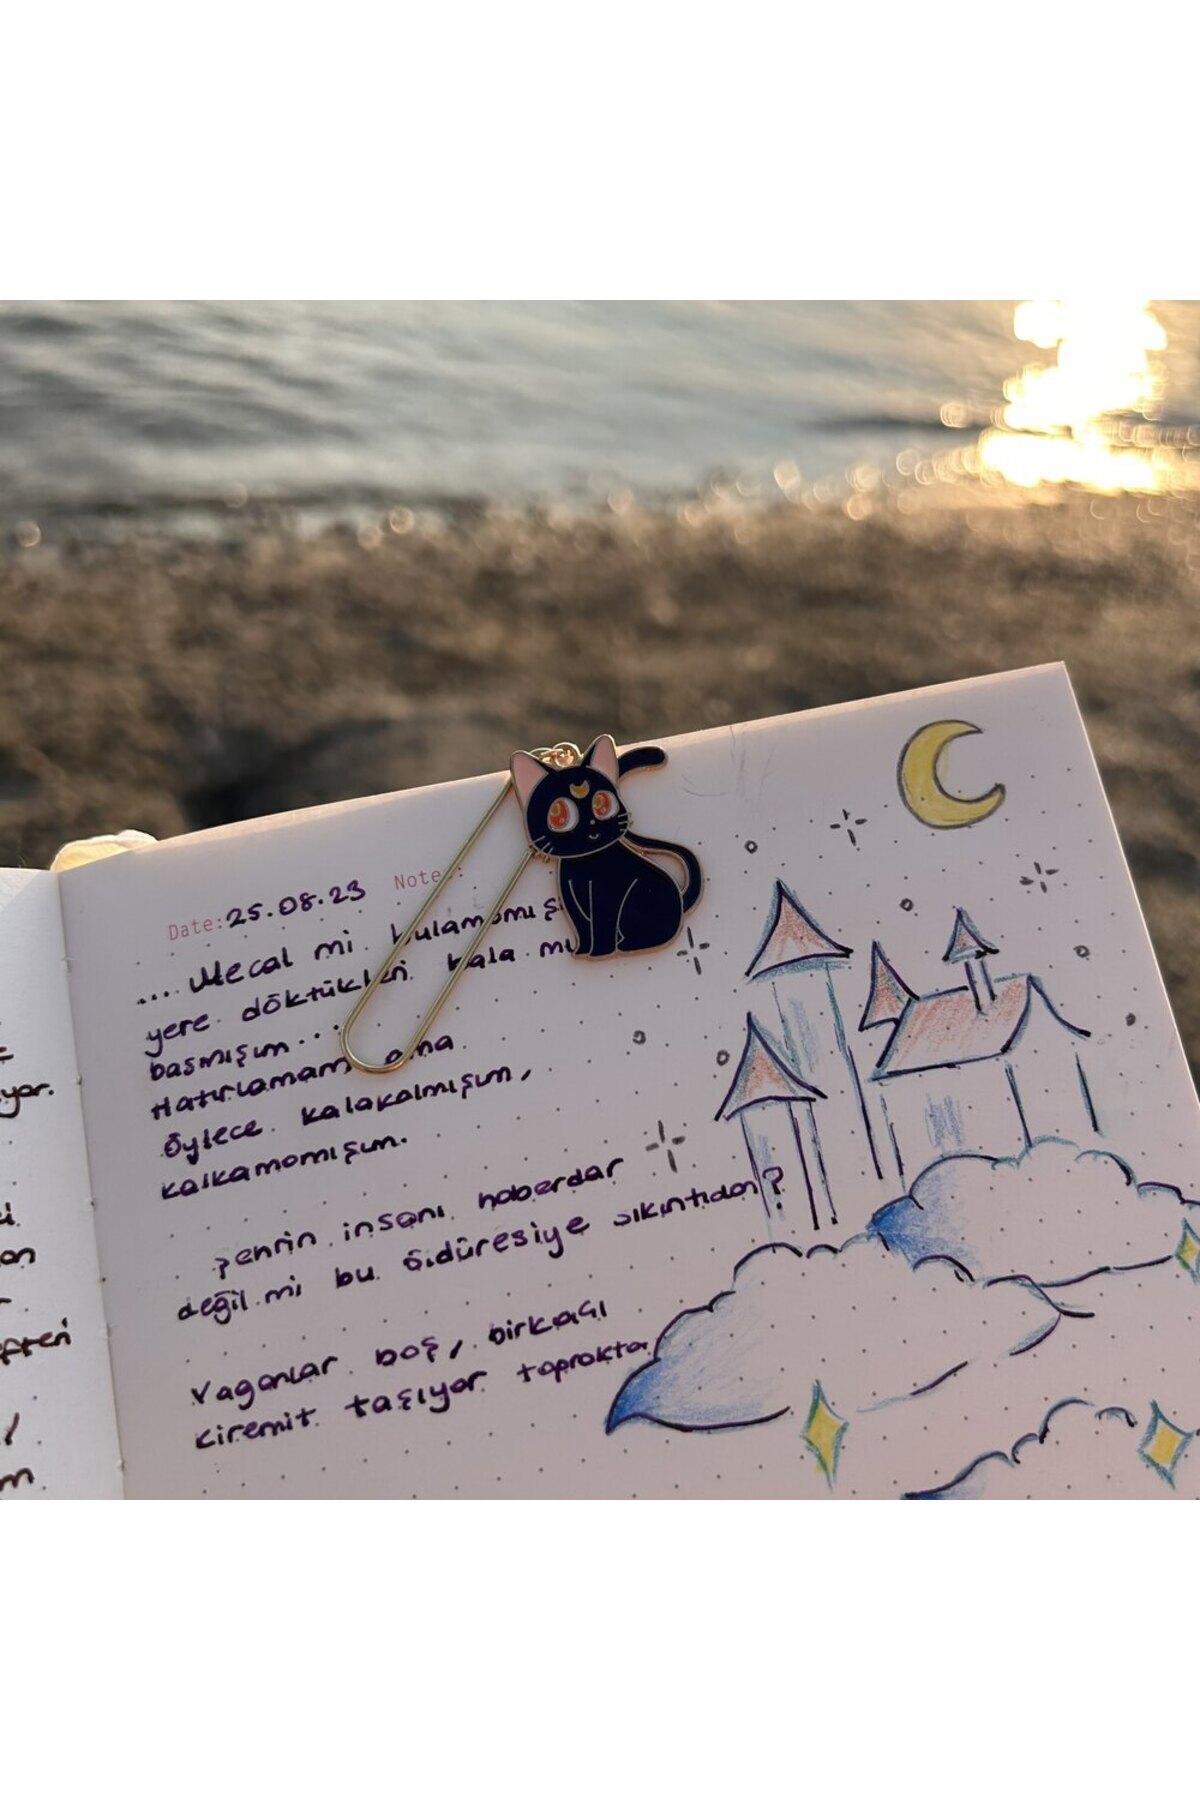 Date: 25.08.23 Note
... Mecal mi bulamamış
yere döktükleri hala mı
basmışım...
Hatırlamam ama
öylece kalakalmışım,
kalkamamışım.
şehrin insanı haberdar
değil mi bu öldüresiye sıkıntıdan?
Vagonlar boş, birkaçı
kiremit taşıyor toprakta
yor.